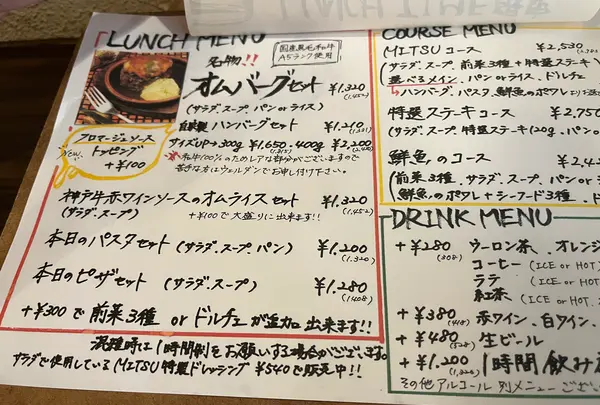 「LUNCH MENU
国産黒毛和牛
A5ランク使用
名物!!
オムバーグセット ¥1,320
(1,452)
(サラダ、スープ、パン or ライス)
自家製 ハンバーグセット ¥1,210
サイズUP→300g ¥1,650、400g ¥2,200
(1,815)
※和牛100%のためレアな部分がございますので
苦手な方はウェルダンでお申し付け下さい。
New!
フロマージュソース
トッピング
+¥100
神戸牛赤ワインソースのオムライスセット ¥1,320
(1,452)
(サラダ、スープ) +¥100で大盛りに出来ます!!
本日のパスタセット (サラダ、スープ、パン) ¥1,200
(1,320)
本日のピザセット (サラダ、スープ) ¥1,280
(1408)
+¥300で前菜3種 or ドルチェが追加出来ます!!
混雑時は1時間制をお願いする場合がございます。
サラダで使用しているMITSU特製ドレッシング ¥540で販売中!!
COURSE MENU
MITSUコース ¥2,530
(サラダ、スープ、前菜3種+特選ステーキ
選べるメイン、パン or ライス、ドルチェ
↳ハンバーグ、パスタ、鮮魚のポワレ
特選ステーキコース ¥2,75
(サラダ、スープ、特選ステーキ120g、パン
鮮魚のコース ¥2,4
(前菜3種、サラダ、スープ、パン
鮮魚のポワレ+シーフード3種、ド
DRINK MENU
+¥280 ウーロン茶、オレンジ
(308)
コーヒー (ICE or HOT)
ラテ (ICE or HOT)
紅茶 (ICE or HOT
+¥380 赤ワイン、白ワイン
(418)
+¥480 生ビール
(528)
+¥1,200 1時間飲み
その他アルコール 別メニューござい